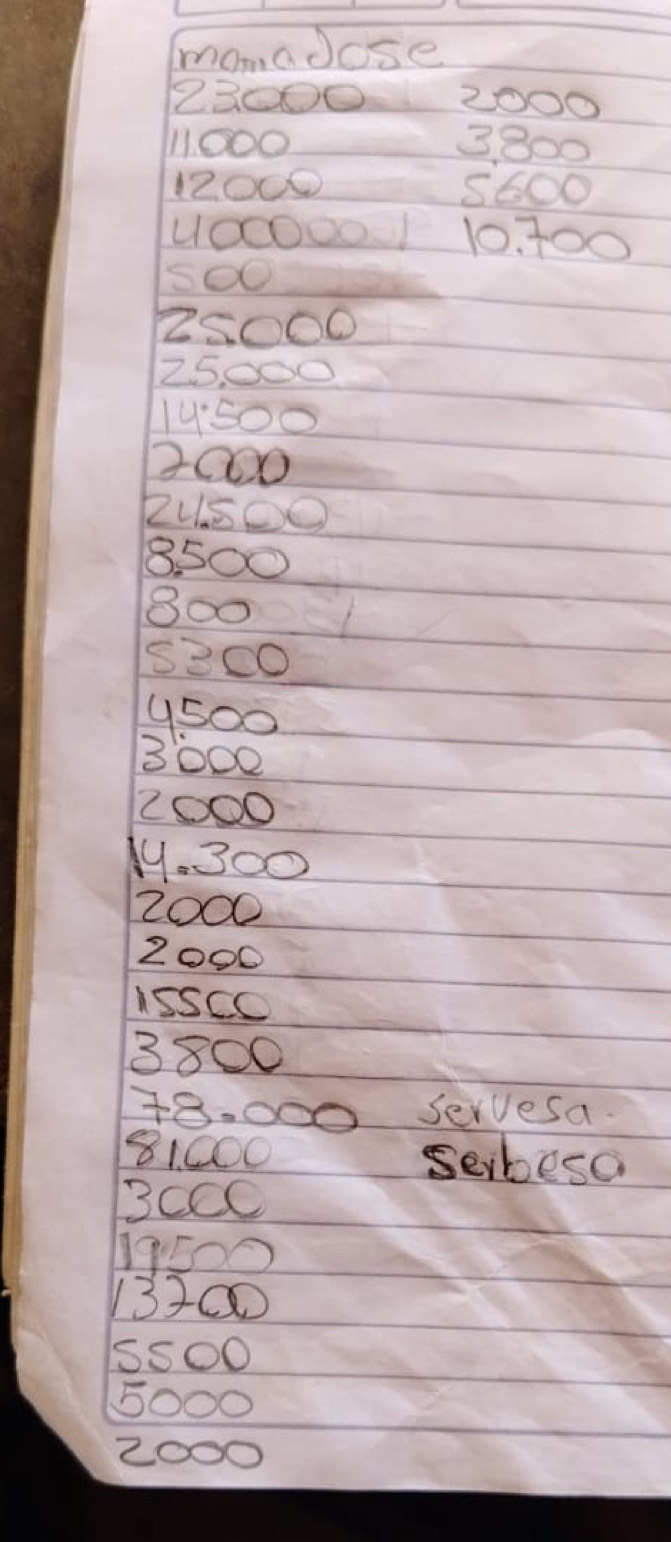 mama Jose
23.000 2000
11.000 3.800
12000 5600
400000 10.700
500
25.000
25.000
14.500
2000
24.500
8.500
800
5300
4.500
3.000
2000
14.300
2000
2000
15500
3800
78.000 servesa.
81.000 Serbesa
3000
19.500
13200
5500
5000
2000